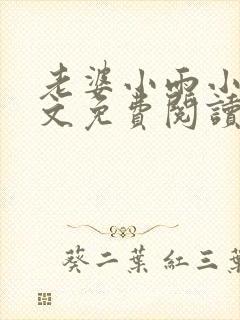 老婆小雨小
文免費閱讀
葵二葉 紅三葉